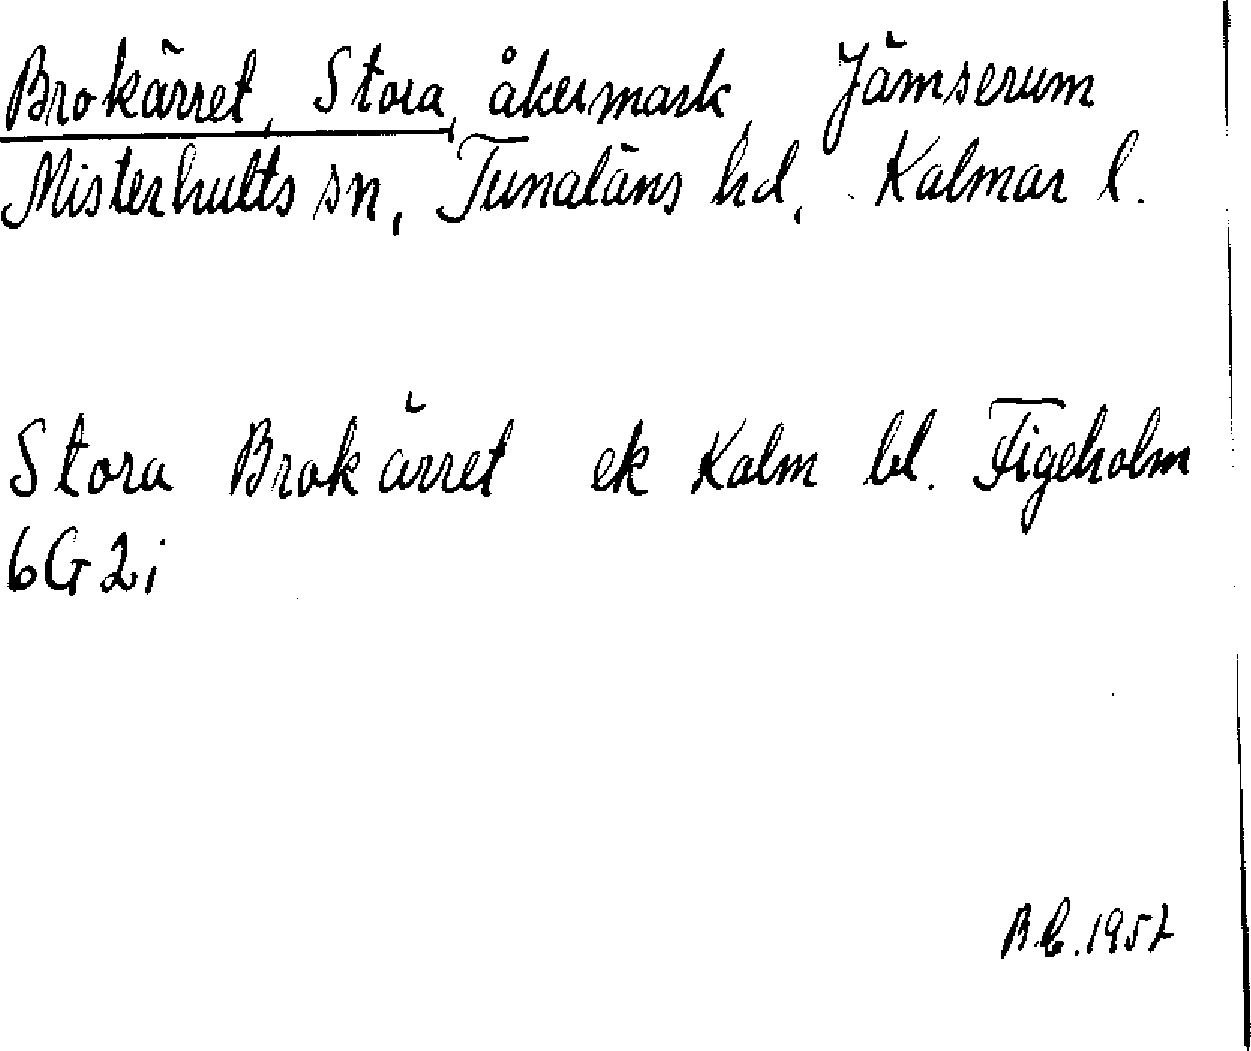 Brokärret, Stora, åkermark, Jämserum
Misterhults sn, Tunaläns hd, Kalmar l.
Stora Brokärret ek Kalm bl. Figeholm
6G2i
1957